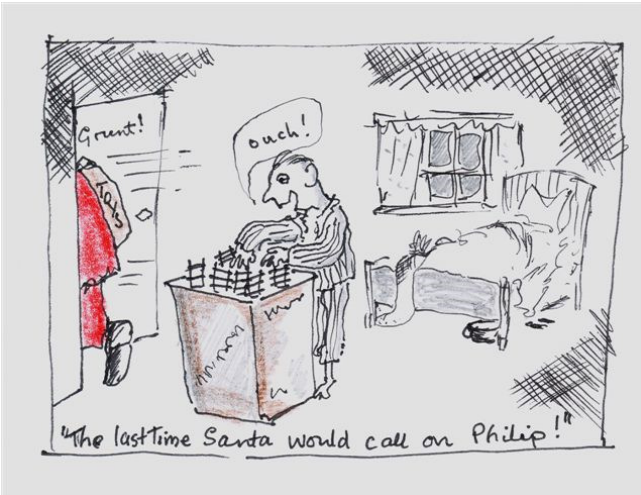 Grunt!
TOYS
ouch!
"The last Time Santa would call on Philip!"